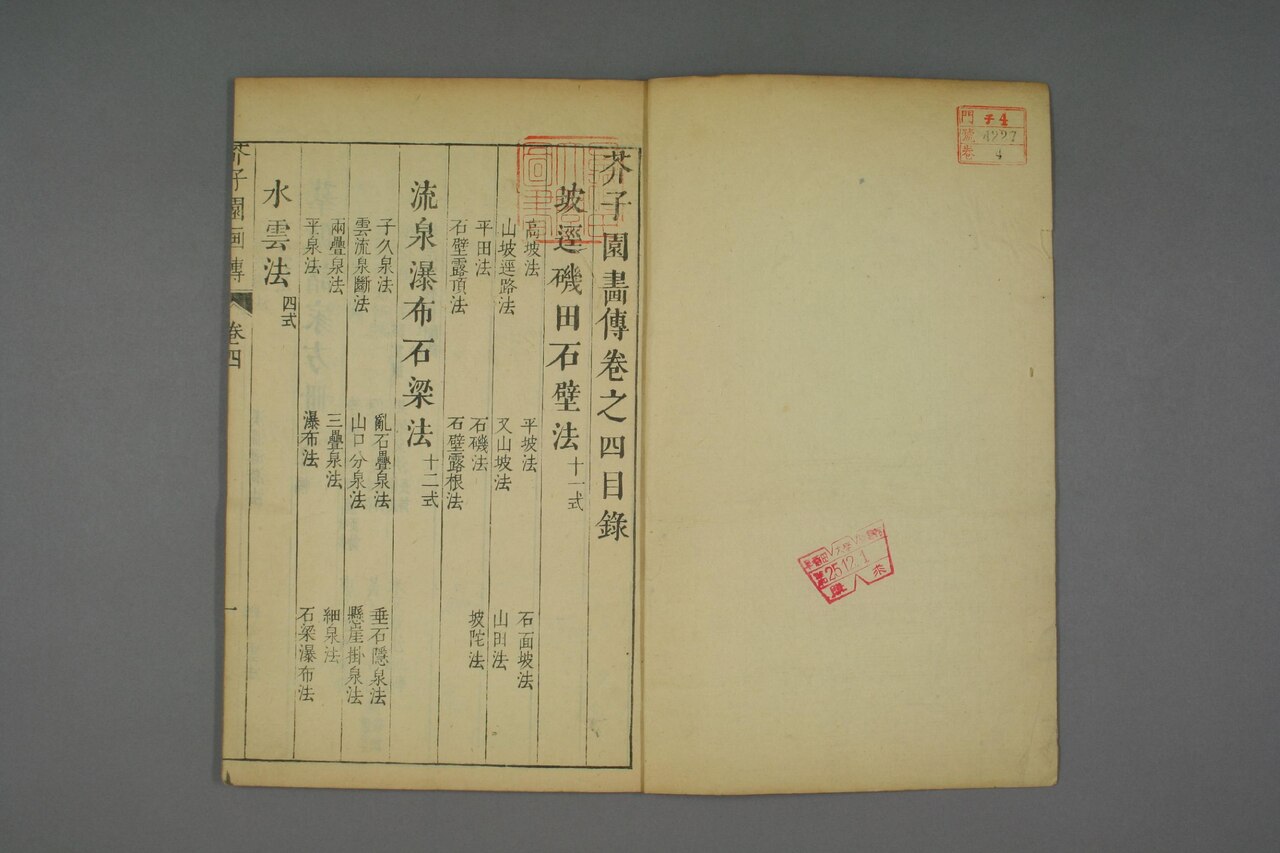 芥子園畫傳卷之四目錄
坡逕磯田石壁法 十一式
高坡法 平坡法 石面坡法
山坡逕路法 又山坡法 山田法
平田法 石磯法 坡陀法
石壁露頂法 石壁露根法
流泉瀑布石梁法 十二式
子久泉法 亂石疊泉法 垂石隱泉法
雲流泉斷法 山口分泉法 懸崖掛泉法
兩疊泉法 三疊泉法 細泉法
平泉法 瀑布法 石梁瀑布法
水雲法 四式
芥子園画傳 卷四 一
門 子4
號 4227
卷 4
25.12.1